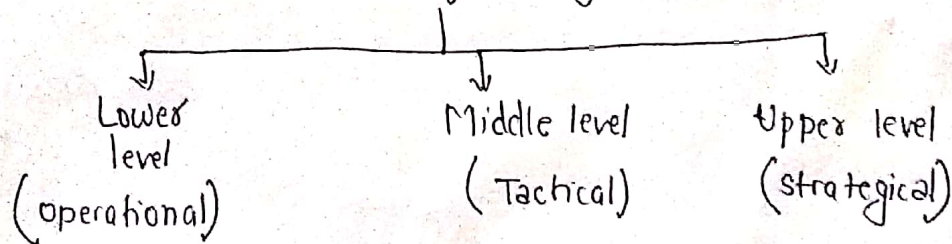 Lower
level
(operational)
Middle level
(Tactical)
Upper level
(strategical)